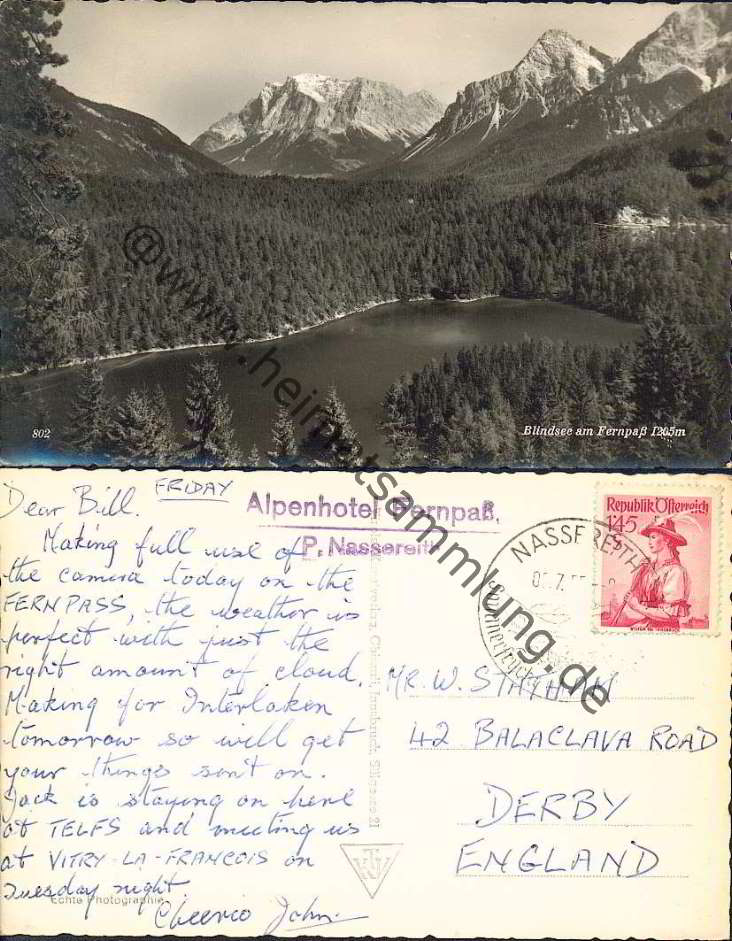 802
Blindsee am Fernpaß 1205m
@www.heimatsammlung.de
Dear Bill. FRIDAY
Making full use of
the camera today on the
FERNPASS, the weather is
perfect with just the
right amount of cloud.
Making for Interlaken
tomorrow so will get
your things sent on.
Jack is staying on here
at TELFS and meeting us
at VITRY-LA-FRANCOIS on
Tuesday night.
Cheerio John
Echte Photographie
Alpenhotel Fernpaß,
P. Nassereith
Republik Österreich
1 45
NASSEREITH
MR. W. STATHAM
42 BALACLAVA ROAD
DERBY
ENGLAND